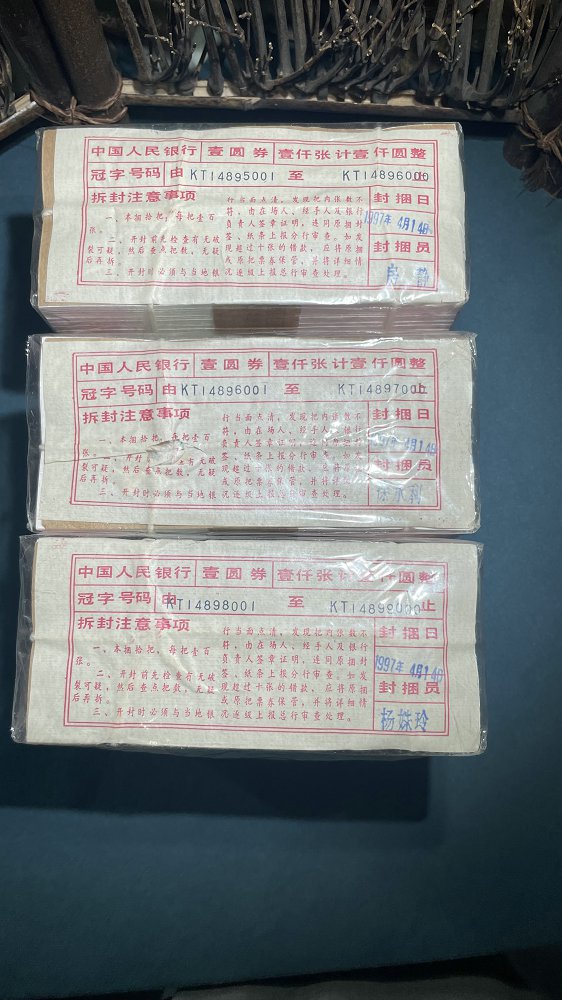 中国人民银行 壹圆券 壹仟张计壹仟圆整
冠字号码 由KT14895001 至 KT14896000止
拆封注意事项
一、本捆拾把，每把壹百
张。
二、开封前先检查有无破
裂可疑，然后查点把数，无疑
后再拆。
三、开封时必须与当地银
行当面点清，发现把内张数不
符，由在场人、经手人及银行
负责人签章证明，连同原捆封
签、纸条上报分行审查。如发
现超过十张的错款，应将原捆
或原把票券保管，并将详细情
况逐级上报总行审查处理。
封捆日
1997年4月14日
封捆员
静
中国人民银行 壹圆券 壹仟张计壹仟圆整
冠字号码 由KT14896001 至 KT14897000止
拆封注意事项
一、本捆拾把，每把壹百
张。
二、开封 有无破
裂可疑，然后查点把数，无疑
后再拆。
三、开封时必须与当地银
行当面点清，发现把内张数不
符，由在场人、经手人及银行
负责人签章证明，连同原捆封
签、纸条上报分行审查。如发
现超过十张的错款，应将原捆
或原把票券保管，并将详细情
况逐级上报总行审查处理。
封捆日
1997年4月14日
封捆员
中国人民银行 壹圆券 壹仟张计壹仟圆整
冠字号码 由KT14898001 至 KT14899000止
拆封注意事项
一、本捆拾把，每把壹百
张。
二、开封前先检查有无破
裂可疑，然后查点把数，无疑
后再拆。
三、开封时必须与当地银
行当面点清，发现把内张数不
符，由在场人、经手人及银行
负责人签章证明，连同原捆封
签、纸条上报分行审查。如发
现超过十张的错款，应将原捆
或原把票券保管，并将详细情
况逐级上报总行审查处理。
封捆日
1997年4月14日
封捆员
杨姝玲